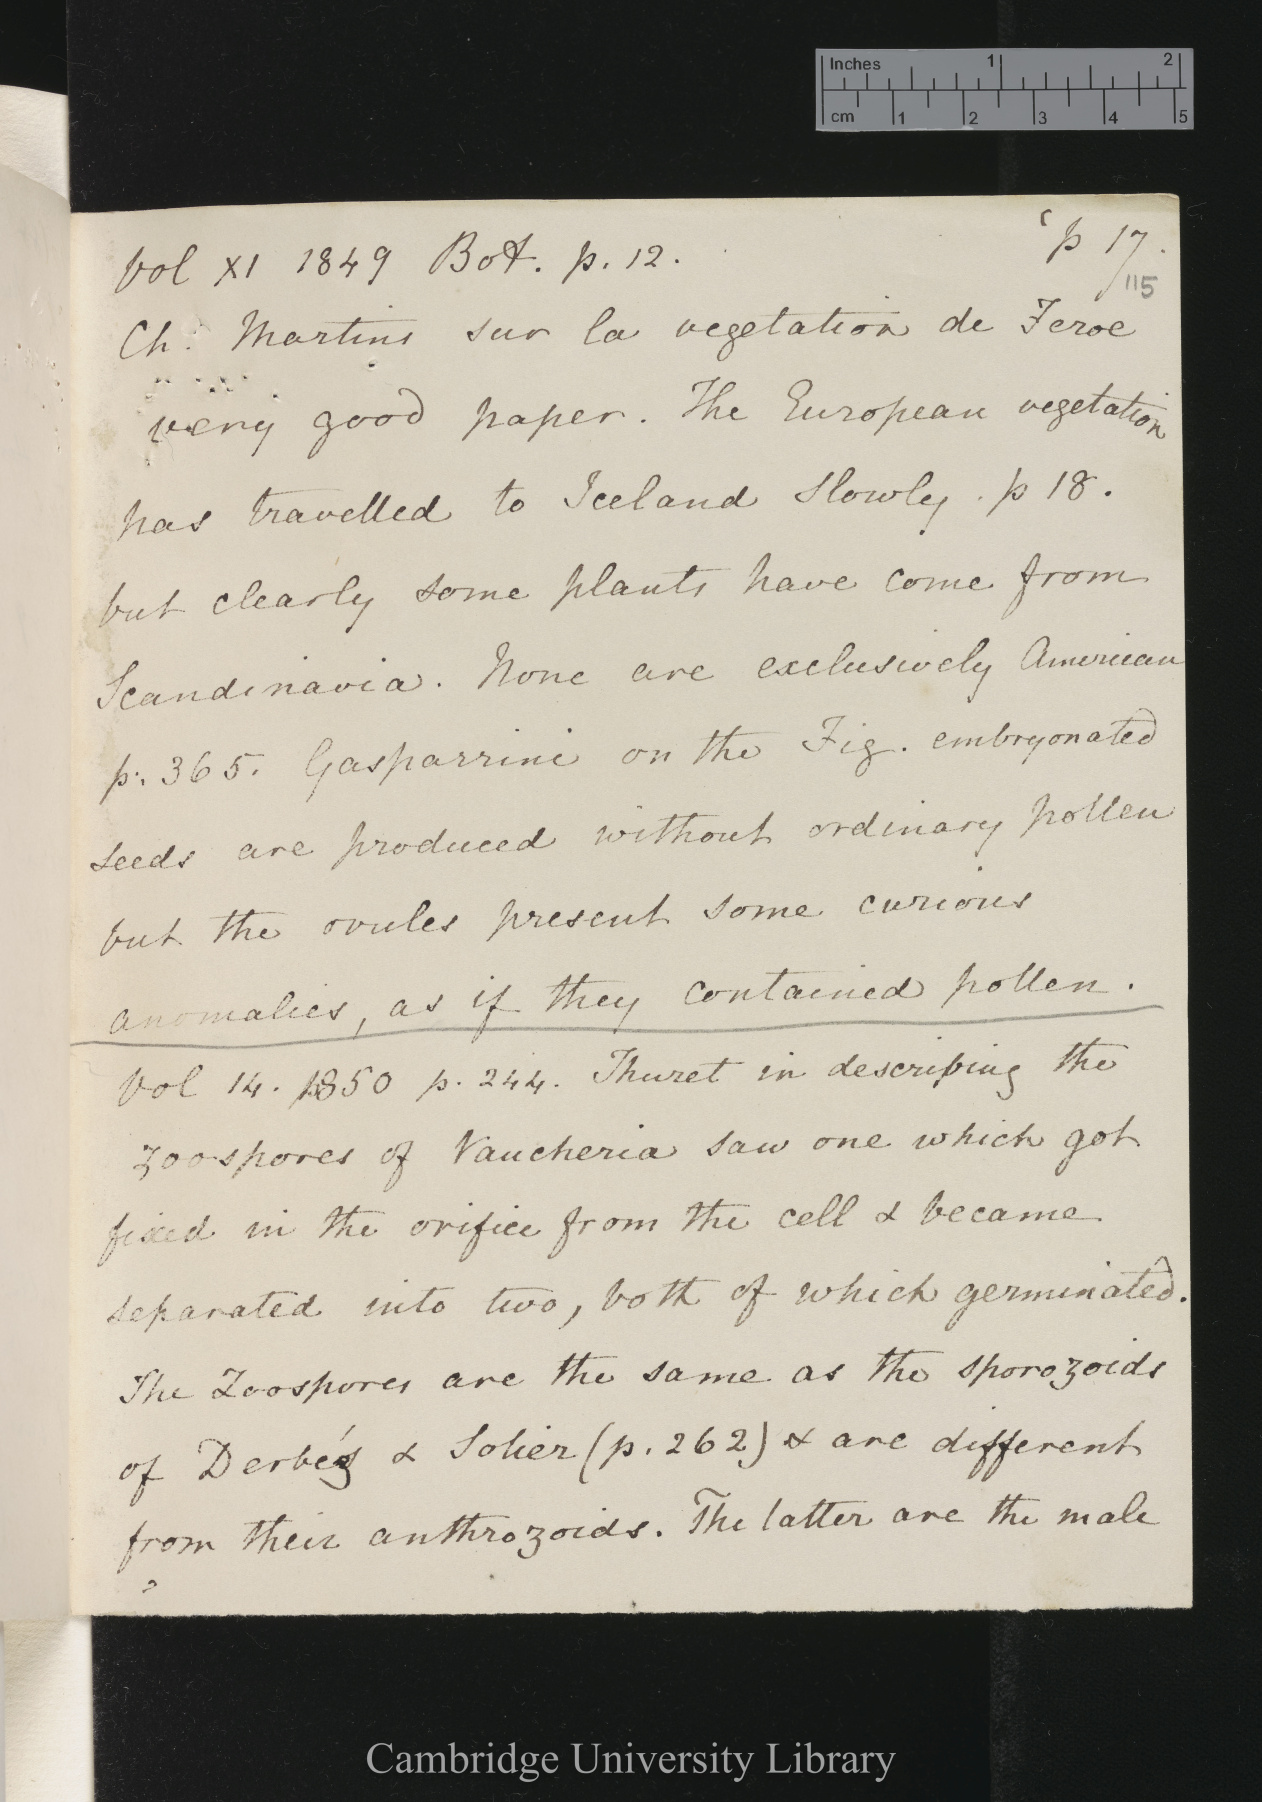 Inches 1 2
cm 1 2 3 4 5
p 17.
115
Vol XI 1849 Bot. p. 12.
Ch. Martins sur la vegetation de Feroe
very good paper. The European vegetation
has travelled to Iceland slowly. p 18.
but clearly some plants have come from
Scandinavia. None are exclusively American
p. 365. Gasparrini on the Fig. embryonated
seeds are produced without ordinary pollen
but the ovules present some curious
anomalies, as if they contained pollen.
Vol 14. 1850 p. 244. Thuret in describing the
zoospores of Vaucheria saw one which got
fixed in the orifice from the cell & became
separated into two, both of which germinated.
The Zoospores are the same as the sporozoids
of Derbés & Solier (p. 262) & are different
from their anthrozoids. The latter are the male
Cambridge University Library